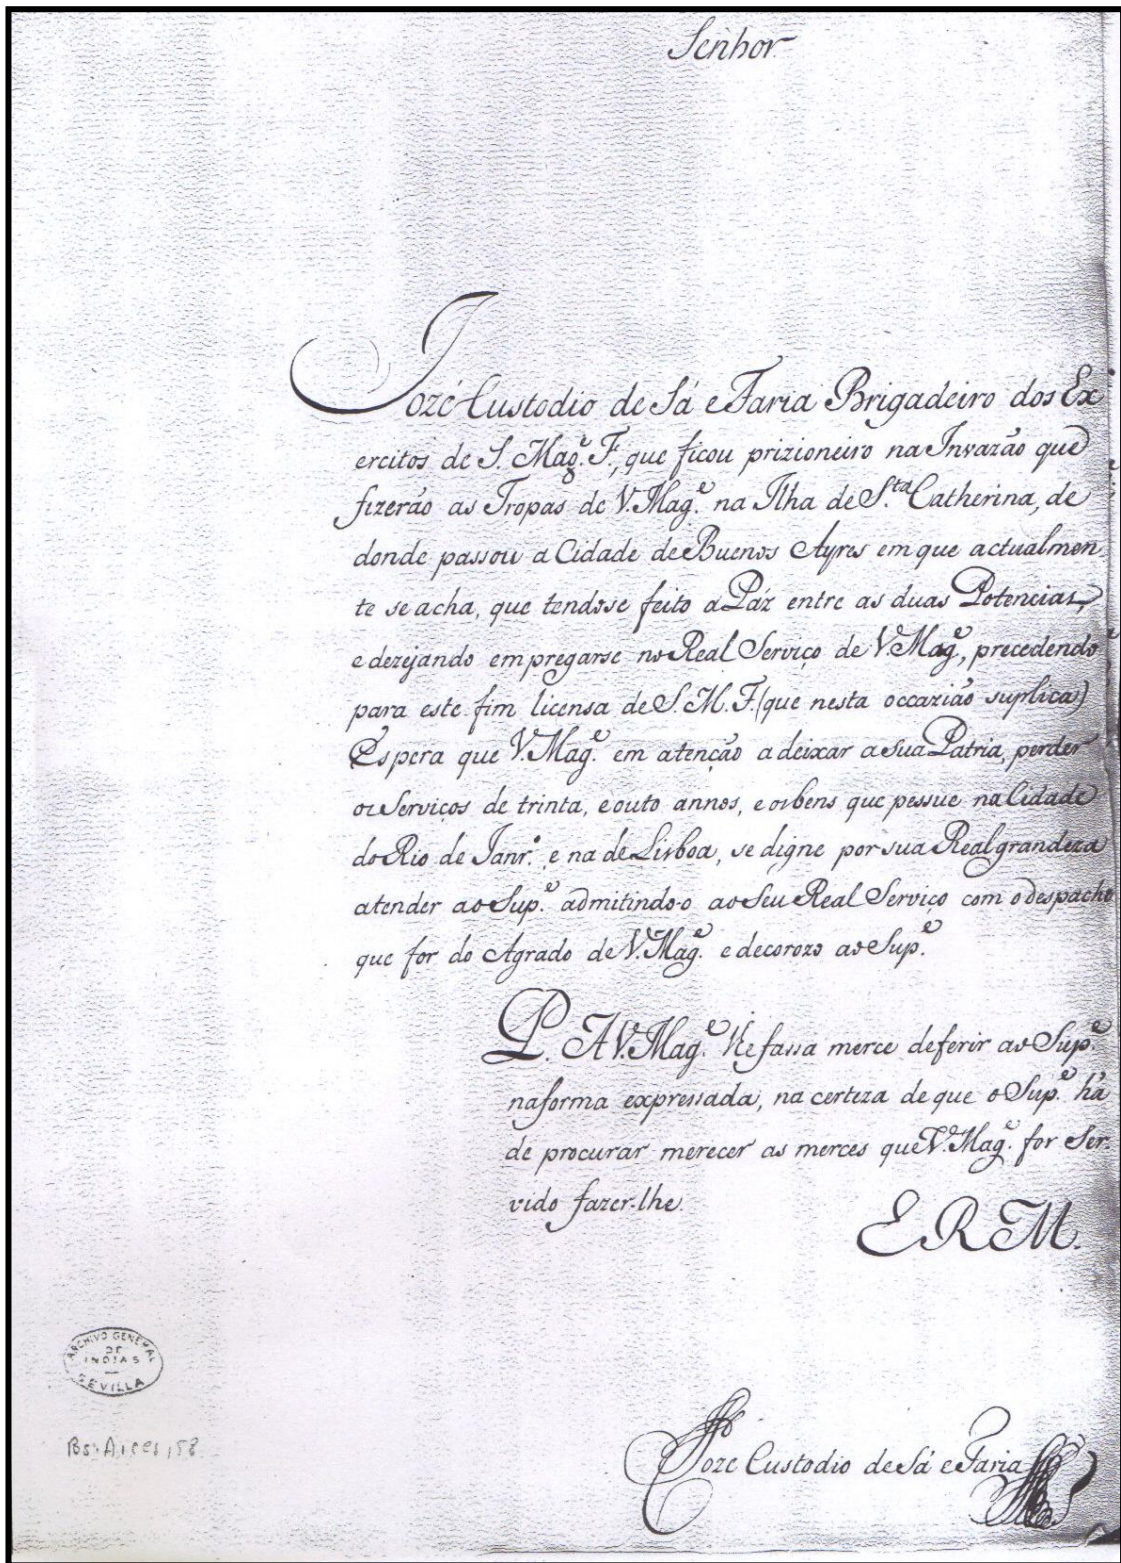 Senhor
Jozé Custodio de Sá e Faria Brigadeiro dos Ex
ercitos de S. Mag.e F., que ficou prizioneiro na Invazão que
fizerão as Tropas de V. Mag.e na Ilha de S.ta Catherina, de
donde passou a Cidade de Buenos Ayres em que actualmen
te se acha, que tendose feito a Páz entre as duas Potencias,
e dezejando empregarse no Real Serviço de V. Mag.e, precedendo
para este fim licensa de S. M. F. (que nesta occazião suplica)
Espera que V. Mag.e em atenção a deixar a sua Patria, perder
os Serviços de trinta, e outo annos, e os bens que pessue na Cidade
do Rio de Janr.o, e na de Lisboa, se digne por sua Real grandeza
atender ao Sup.e admitindo-o ao Seu Real Serviço com o despacho
que for do Agrado de V. Mag.e e decorozo ao Sup.e
P. A V. Mag.e lhe fassa merce deferir ao Sup.e
na forma expressada, na certeza de que o Sup.e há
de procurar merecer as merces que V. Mag.e for Ser-
vido fazer-lhe.
E R M.
ARCHIVO GENERAL
DE
INDIAS
SEVILLA
Bs. Aires, 58
Joze Custodio de Sá e Faria